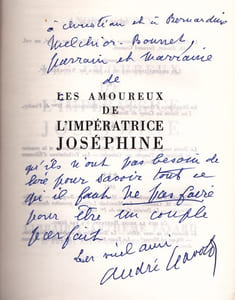 à Christian et à Bernardine
Melchior-Bonnet,
parrain et marraine
de
LES AMOUREUX
DE
L'IMPÉRATRICE
JOSÉPHINE
qu'ils n'ont pas besoin de
lire pour savoir tout ce
qu'il faut ne pas faire
pour être un couple
parfait
Leur vieil ami
André